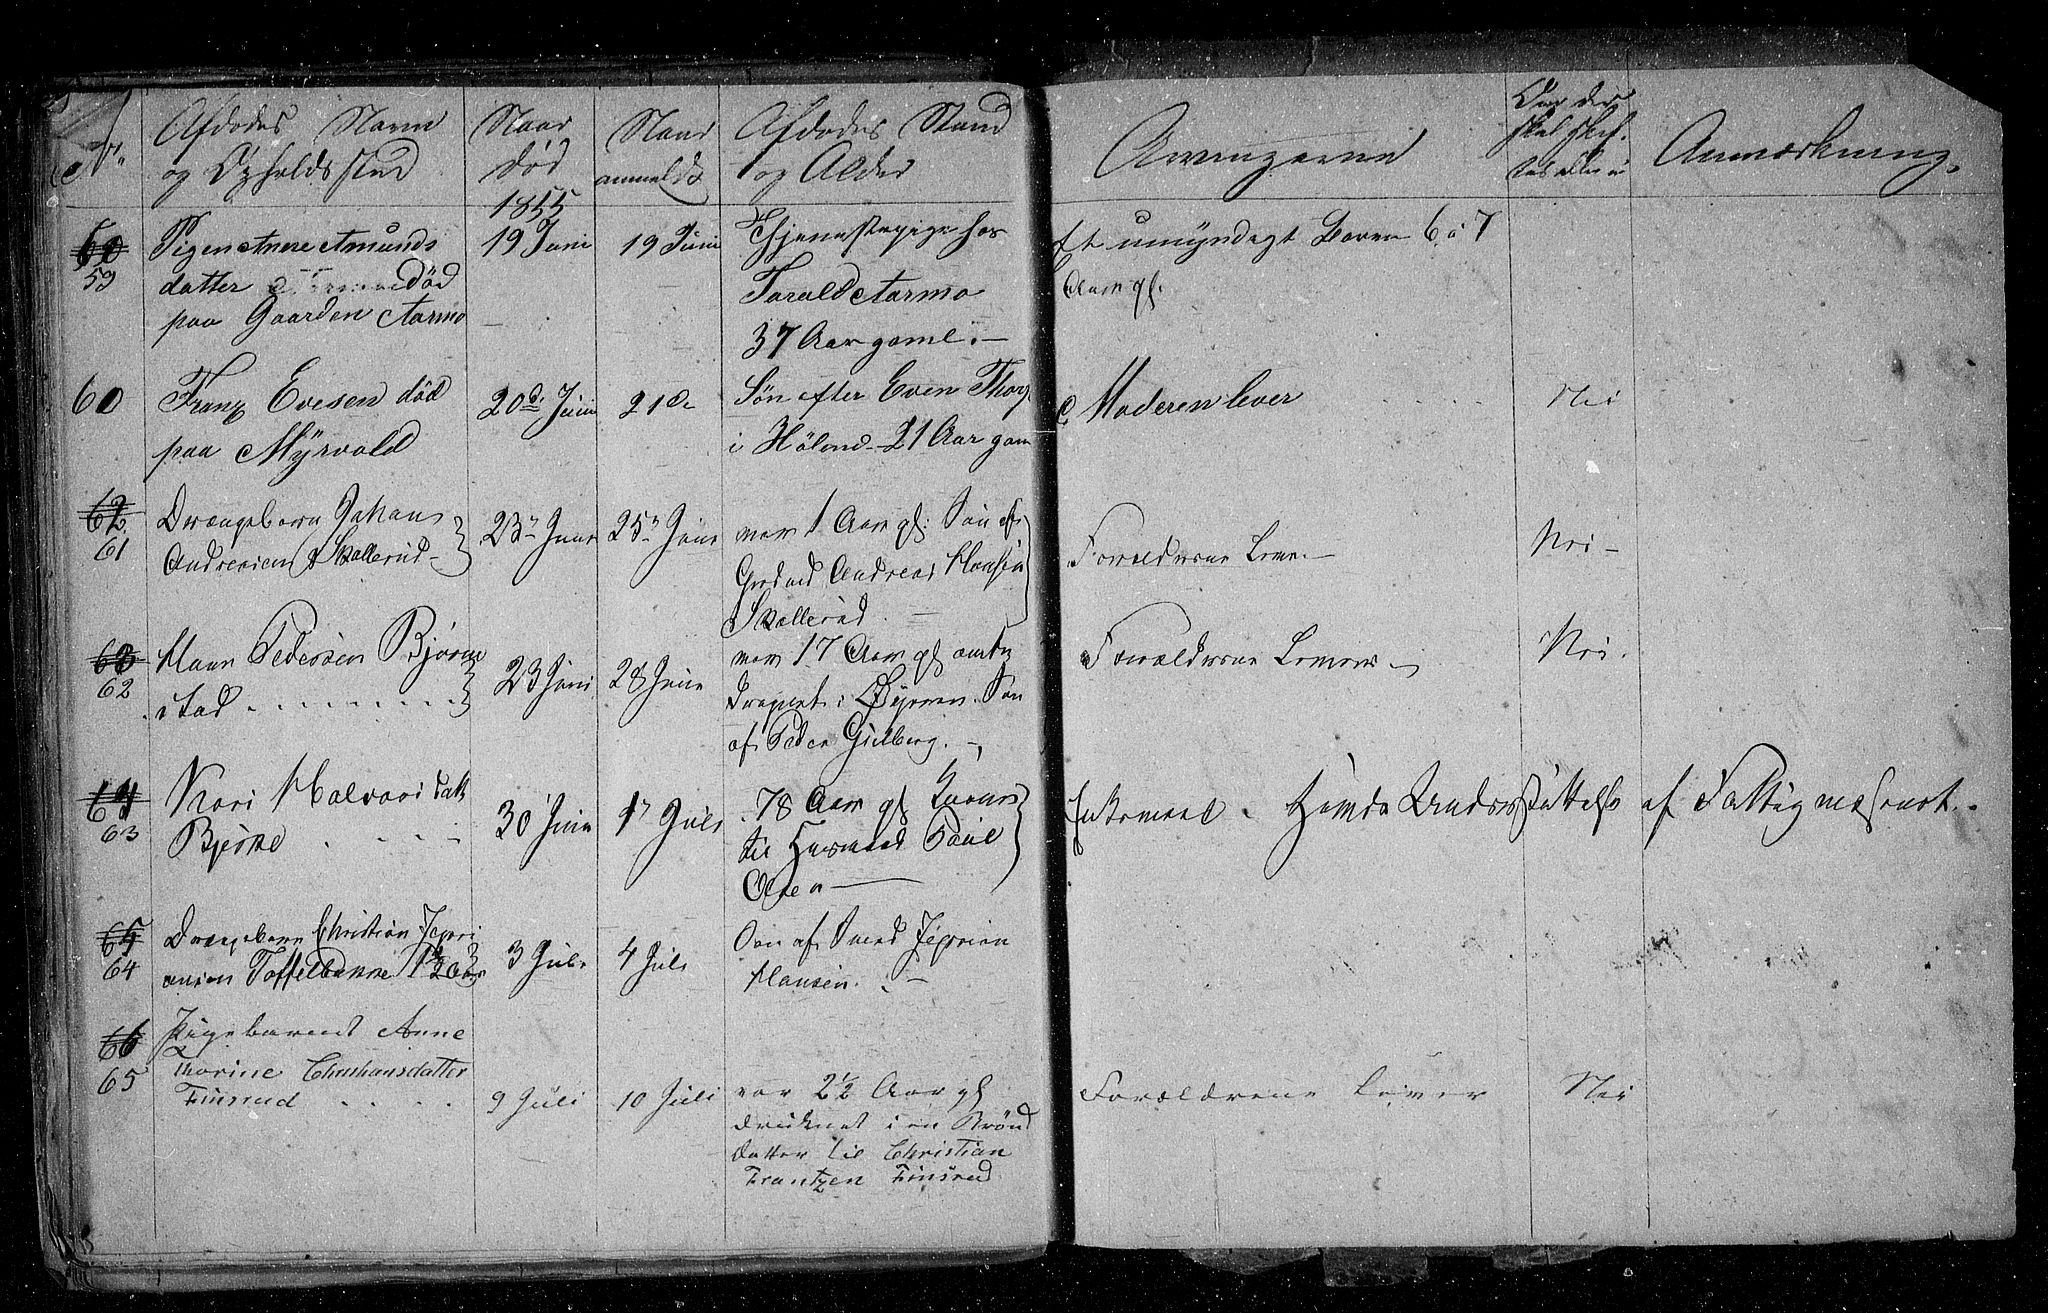 No.
Afdødes Navn
og Opholdssted
Naar
død
Naar
anmeldt
Afdødes Stand
og Alder
Arvingerne
Om der
skal skif-
tes eller ei
Anmærkning.
1855
60
59
Pigen Anne Amunds
datter død
paa Gaarden Aarmo
19 Juni
19 Juni
Tjenestepige hos
Tarald Aarmo
37 Aar gaml. –
et umyndigt Barn 6 a 7
Aar gl.
60
Franz Evesen død
paa Myrvold
20de Juni
21de
Søn efter Even Thorp
i Høland - 21 Aar gam
Moderen lever
Nei
62
61
Drengebarn Johan
Andreasen Skallerud -
23n Juni
25n Juni
var 1 Aar gl: Søn af
Grdmd Andreas Hansen
Skallerud.
Forældrene Leve. –
Nei –
63
62
Hans Pedersen Bjørne
stad
23 Juni
28 Juni
var 17 Aar gl
druknet i Øyeren. Søn
af Peder Gulberg. –
Forældrene Lever –
Nei.
64
63
Kari Halvorsdatt
Bjerke
30 Juni
1 Juli
78 Aar gl
til Husmand Poul
Olsen
Enkemand. Understøttelse af Fattigvæsenet.
65
64
Drengebarn Christian
Toffelbakke
3 Juli
4 Juli
Søn af
Hansen. –
66
65
Pigebarnet Anne
Thorine Christiansdatter
Finsrud
9 Juli
10 Juli
var 2½ Aar gl
druknet i en Brønd
datter til Christian
Frantzen Finsrud
Forældrene Lever
Nei